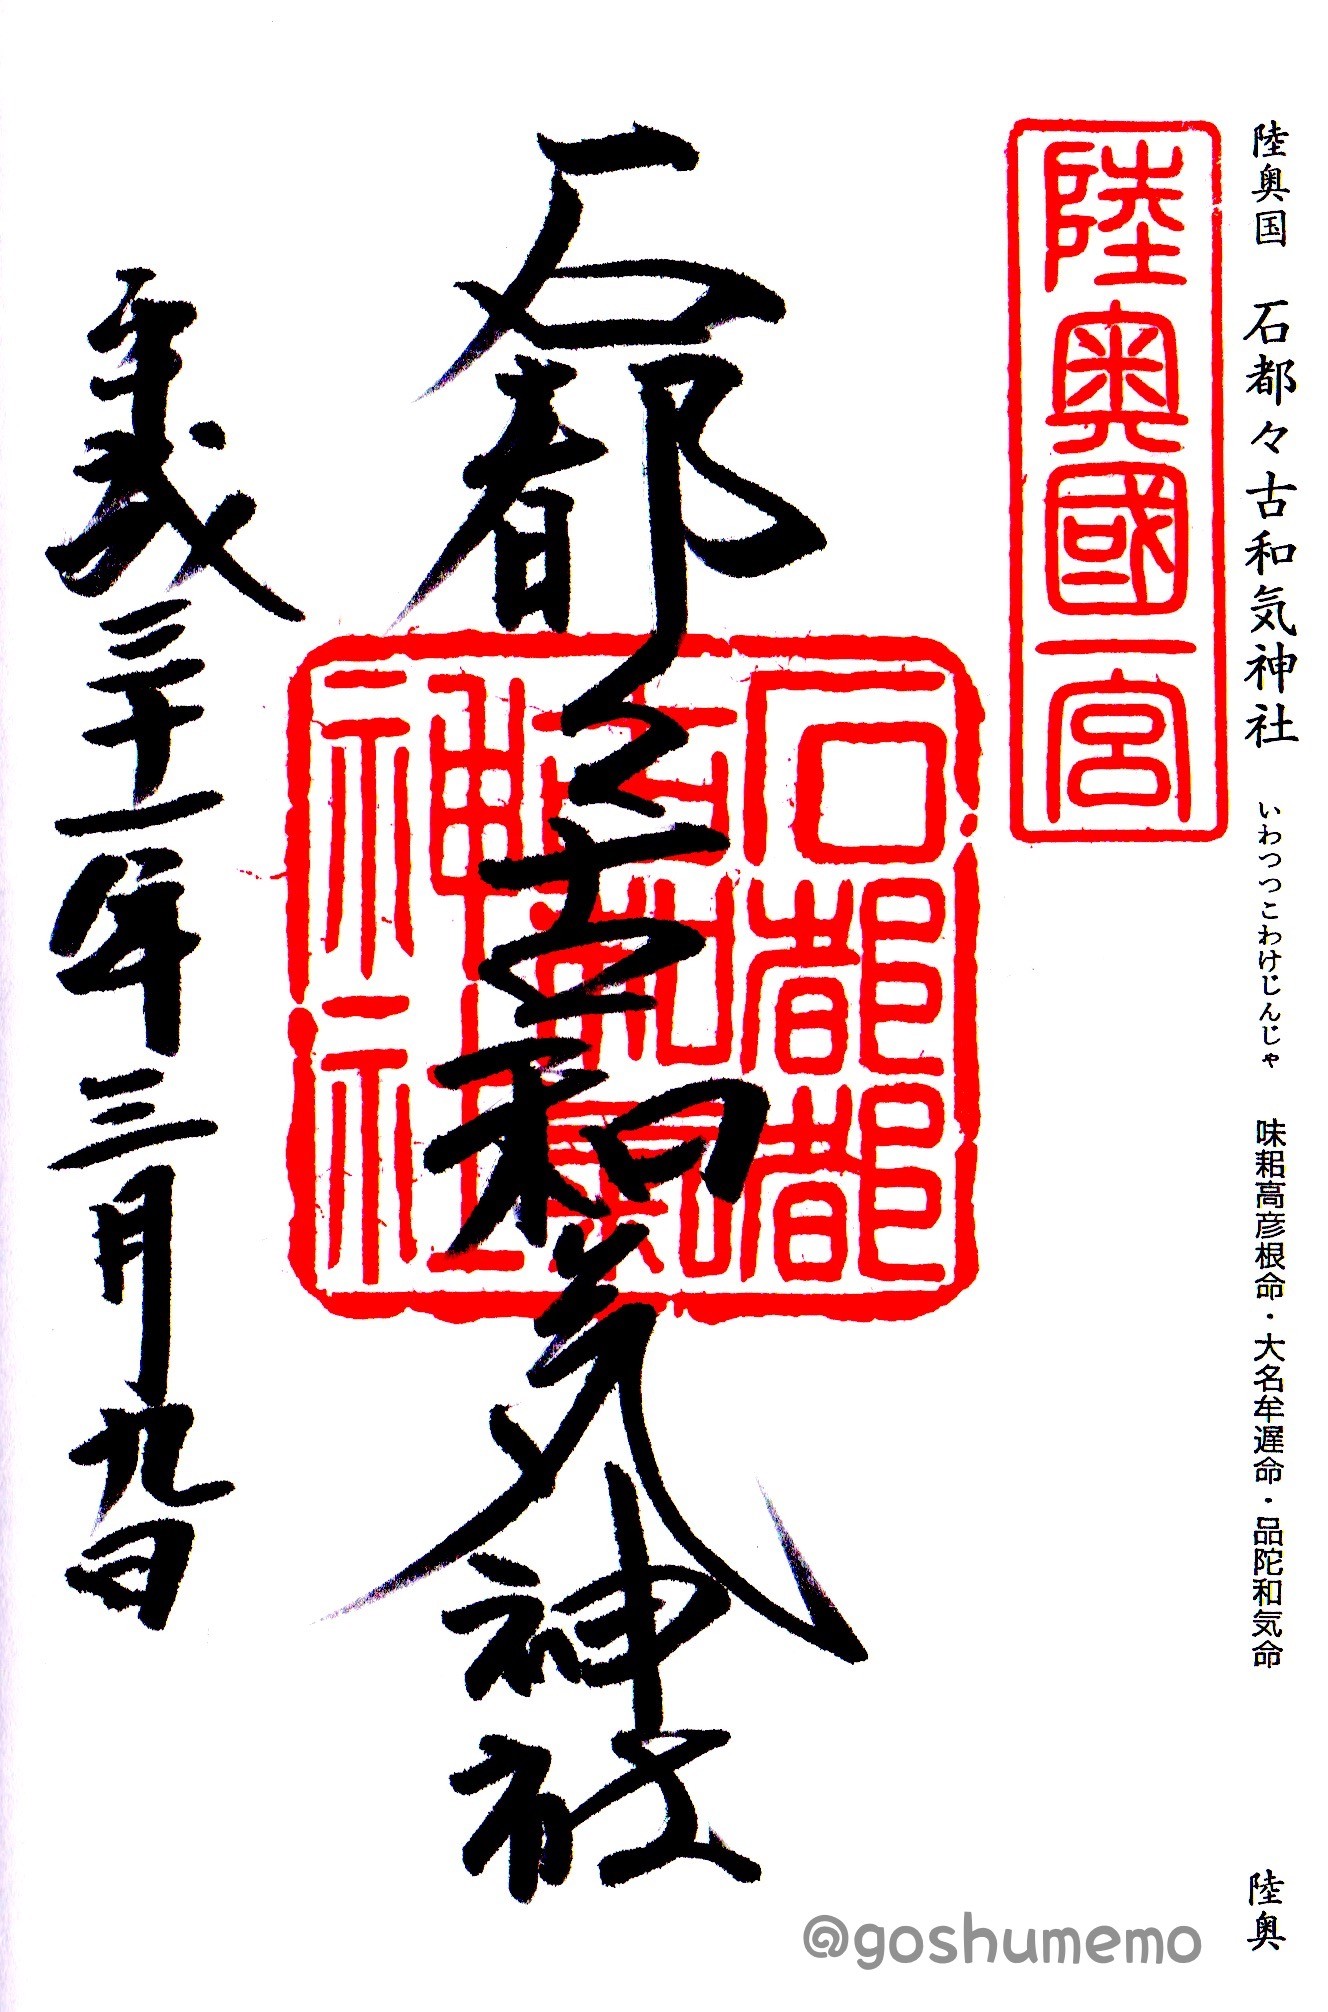 陸奥国 石都々古和気神社 いわつつこわけじんじゃ 味耜高彦根命・大名牟遅命・品陀和気命 陸奥
陸奥國一宮
石都々古和気神社
石都都
古和氣
神社
平成三十一年三月九日
@goshumemo